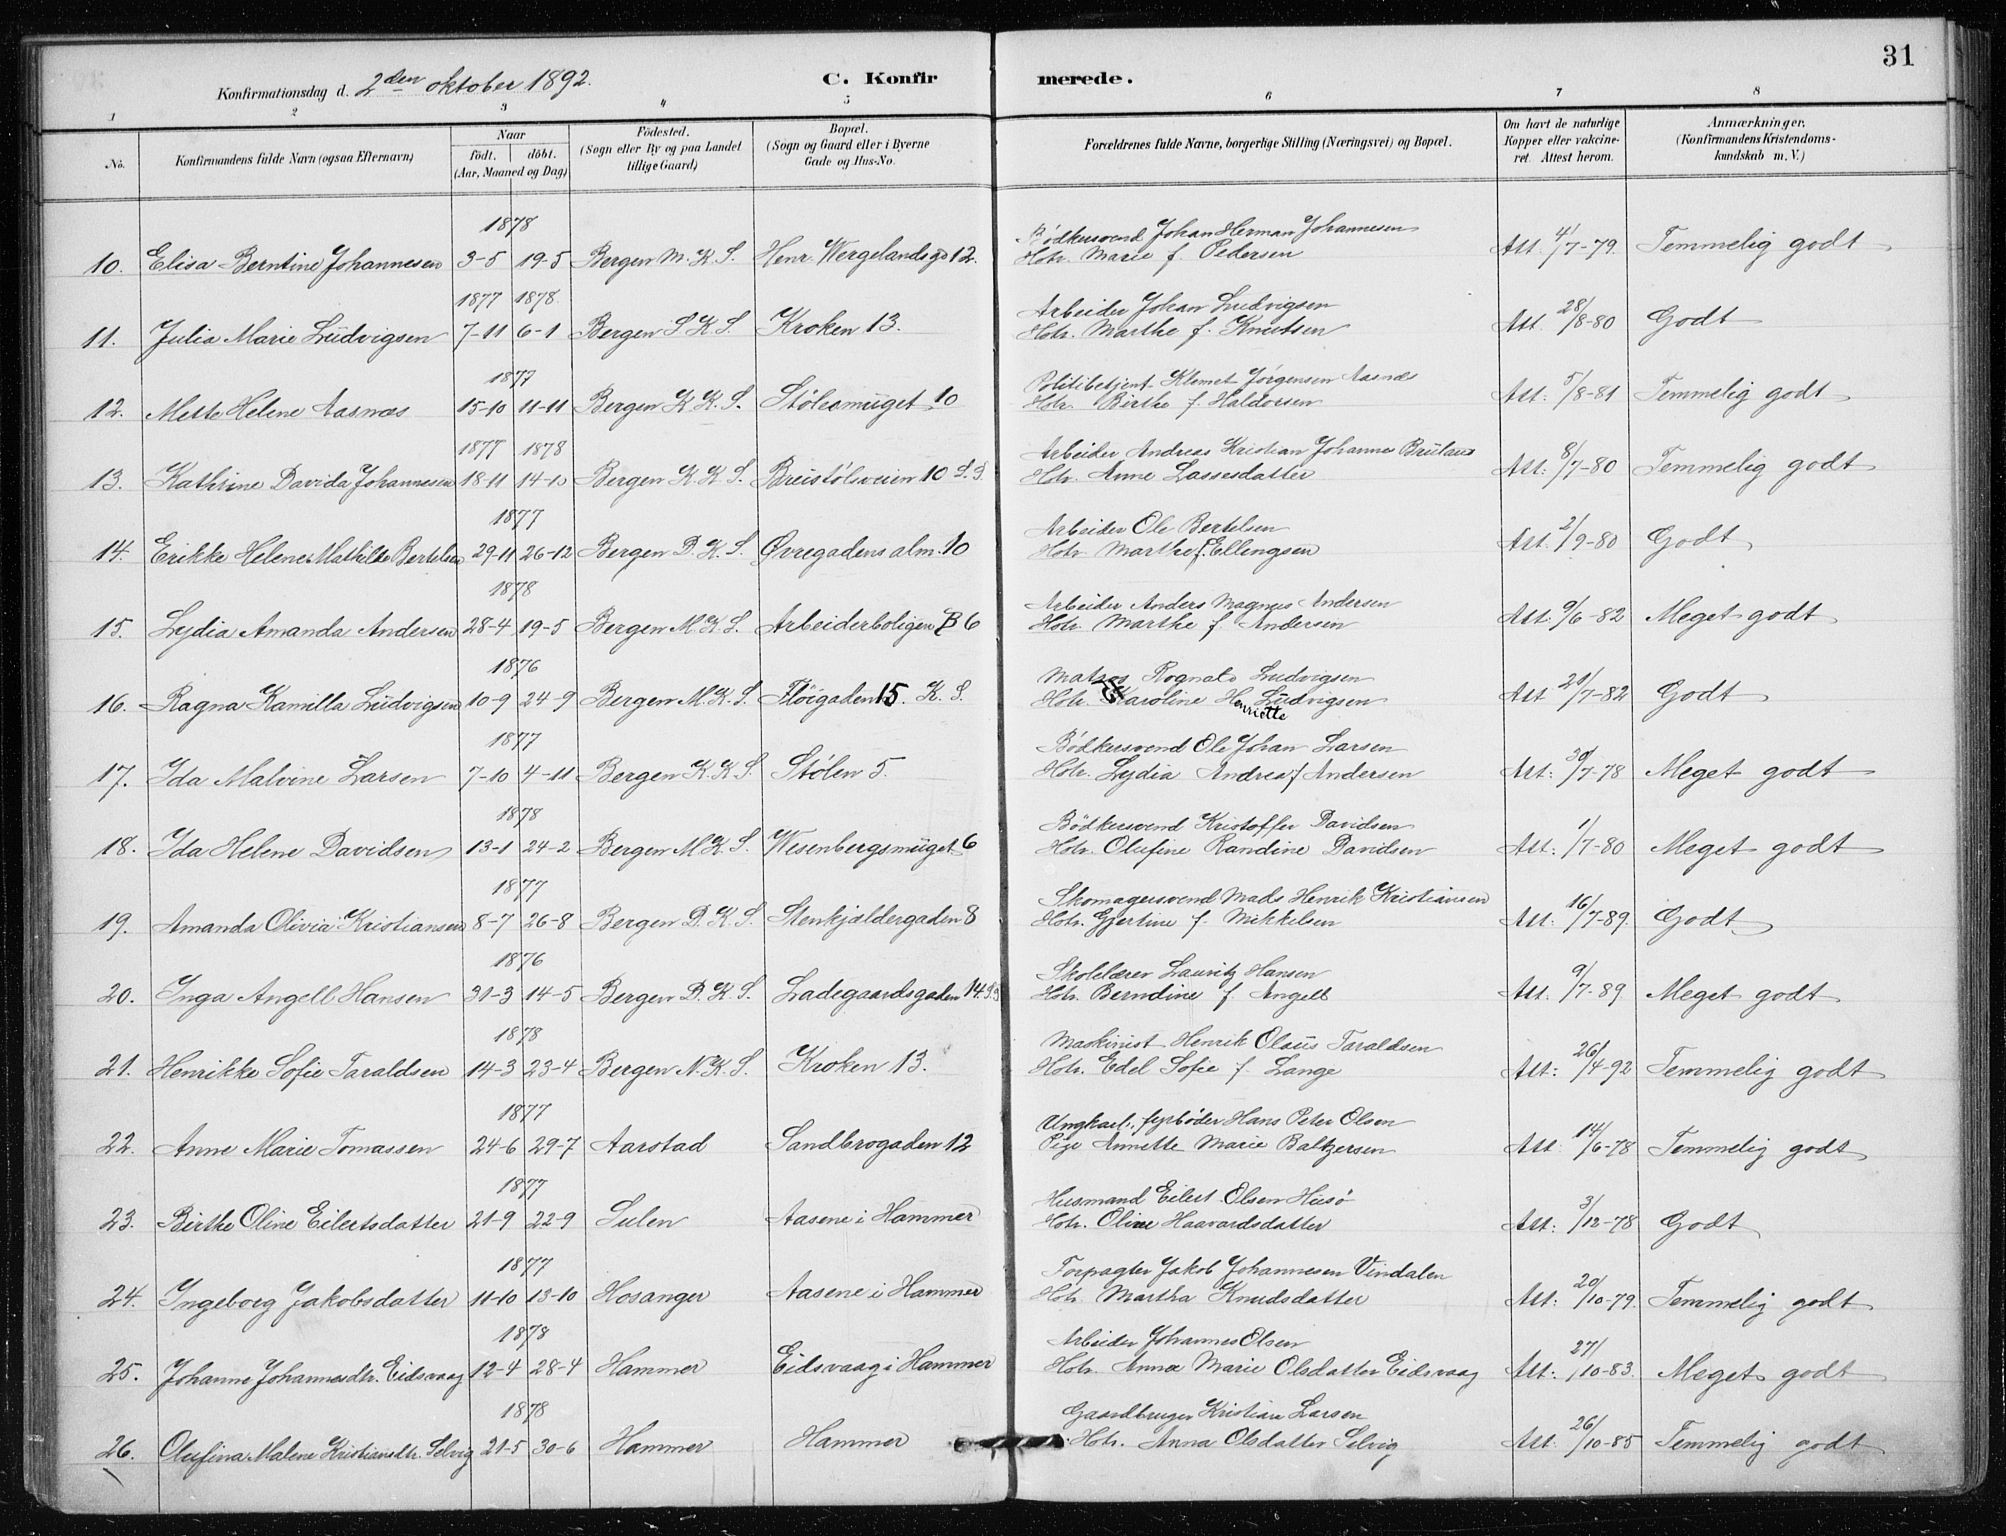 31
Konfirmationsdag d. 2den oktober 1892.
C. Konfirmerede.
1 2 3 4 5 6 7 8
No.
Konfirmandens fulde Navn (ogsaa Efternavn)
Naar
födt. döbt.
(Aar, Maaned og Dag)
Födested.
(Sogn eller By og paa Landet
tillige Gaard)
Bopæl.
(Sogn og Gaard eller i Byerne
Gade og Hus-No.
Forældrenes fulde Navne, borgerlige Stilling (Næringsvei) og Bopæl.
Om havt de naturlige
Kopper eller vakcine-
ret. Attest herom.
Anmærkninger.
(Konfirmandens Kristendoms-
kundskab m. V.)
1878 Bödkersvend Johan Herman Johannesen
10. Elisa Berntine Johannesen 3-5 19-5 Bergen M. K. S. Henr. Wergelandsgd 12. Hstr. Marie f. Pedersen Att. 4/7-79. Temmelig godt
1877 1878 Arbeider Johan Ludvigsen
11. Julia Marie Ludvigsen 7-11 6-1 Bergen S. K. S. Kroken 13. Hstr. Marthe f. Knutsen Att. 28/8-80 Godt
1877 Politibetjent Klemet Jörgensen Aasnæs
12. Mette Helene Aasnæs 15-10 11-11 Bergen K. K. S. Stölesmuget 10 Hstr. Birthe f. Haldorsen Att: 5/8-81 Temmelig godt
1877 1878 Arbeider Andreas Kristian Johannes
13. Kathrine Davida Johannesen 18-11 14-10 Bergen K. K. S. Breistölsveien 10 Hstr. Anne Lassesdatter Att: 8/7-80 Temmelig godt
1877 Arbeider Ole Bertelsen
14. Erikke Helene Mathilde Bertelsen 29-11 26-12 Bergen D. K. S. Øvregadens alm. 10 Hstr. Marthe f. Ellingsen Att. 2/9-80 Godt
1878 Arbeider Anders Magnus Andersen
15. Lydia Amanda Andersen 28-4 19-5 Bergen M. K. S. Arbeiderboligen B 6 Hstr. Marthe f. Andersen Att. 9/6-82 Meget godt
1876 Matros Rognald Ludvigsen
16. Ragna Kamilla Ludvigsen 10-9 24-9 Bergen M. K. S. Flöigaden 15. K. S. Hstr. Karoline Henriette Ludvigsen Att 21/7-82 Godt
1877 Bödkersvend Ole Johan Larsen
17. Ida Malvine Larsen 7-10 4-11 Bergen K. K. S. Stölen 5. Hstr. Lydia Andrea f Andersen Att: 30/7-78 Meget godt
1878 Bödkersvend Kristoffer Davidsen
18. Ida Helene Davidsen 13-1 24-2 Bergen M. K. S. Wesenbergsmuget 6 Hstr. Olufine Randine Davidsen Att: 1/7-80 Meget godt
1877 Skomagersvend Mads Henrik Kristiansen
19. Amanda Olivia Kristiansen 8-7 26-8 Bergen D. K. S. Stenkjældergaden 8 Hstr. Gjertine f. Mikkelsen Att: 16/7-89. Godt
1876 Skolelærer Lauritz Hansen
20. Inga Angell Hansen 31-3 14-5 Bergen D. K. S. Ladegaardsgaden 14 Hstr. Berndine f. Angell Att: 9/7-89 Meget godt
1878 Maskinist Henrik Olaus Taraldsen
21. Henrikke Sofie Taraldsen 14-3 23-4 Bergen N. K. S. Kroken 13. Hstr. Edel Sofie f. Lange Att: 26/4-92 Temmelig godt
1877 Ungkarl, fyrböder Hans Peter Olsen
22. Anne Marie Tomassen 24-6 29-7 Aarstad Sandbrogaden 12 Pige Annette Marie Baltzersen Att: 14/6-78 Temmelig godt
1877 Husmand Eilert Olsen Husö
23. Birthe Oline Eilertsdatter 21-9 22-9 Sulen Aasene i Hammer Hstr. Oline Haavardsdatter Att: 3/12-78 Godt
1877 Forpagter Jakob Johannesen Vindalen
24. Ingeborg Jakobsdatter 11-10 13-10 Hosanger Aasene i Hammer Hstr. Martha Knudsdatter Att: 20/10-79. Temmelig godt
1878 Arbeider Johannes Olsen
25. Johanne Johannesdtr. Eidsvaag 12-4 28-4 Hammer Eidsvaag i Hammer Hstr. Anna Marie Olsdatter Eidsvaag Att: 27/10-83. Meget godt
1878 Gaardbruger Kristian Larsen
26. Olufina Malene Kristiansdtr. Selvig 21-5 30-6 Hammer Hammer Hstr. Anna Olsdatter Selvig Att 26/10-85 Temmelig godt